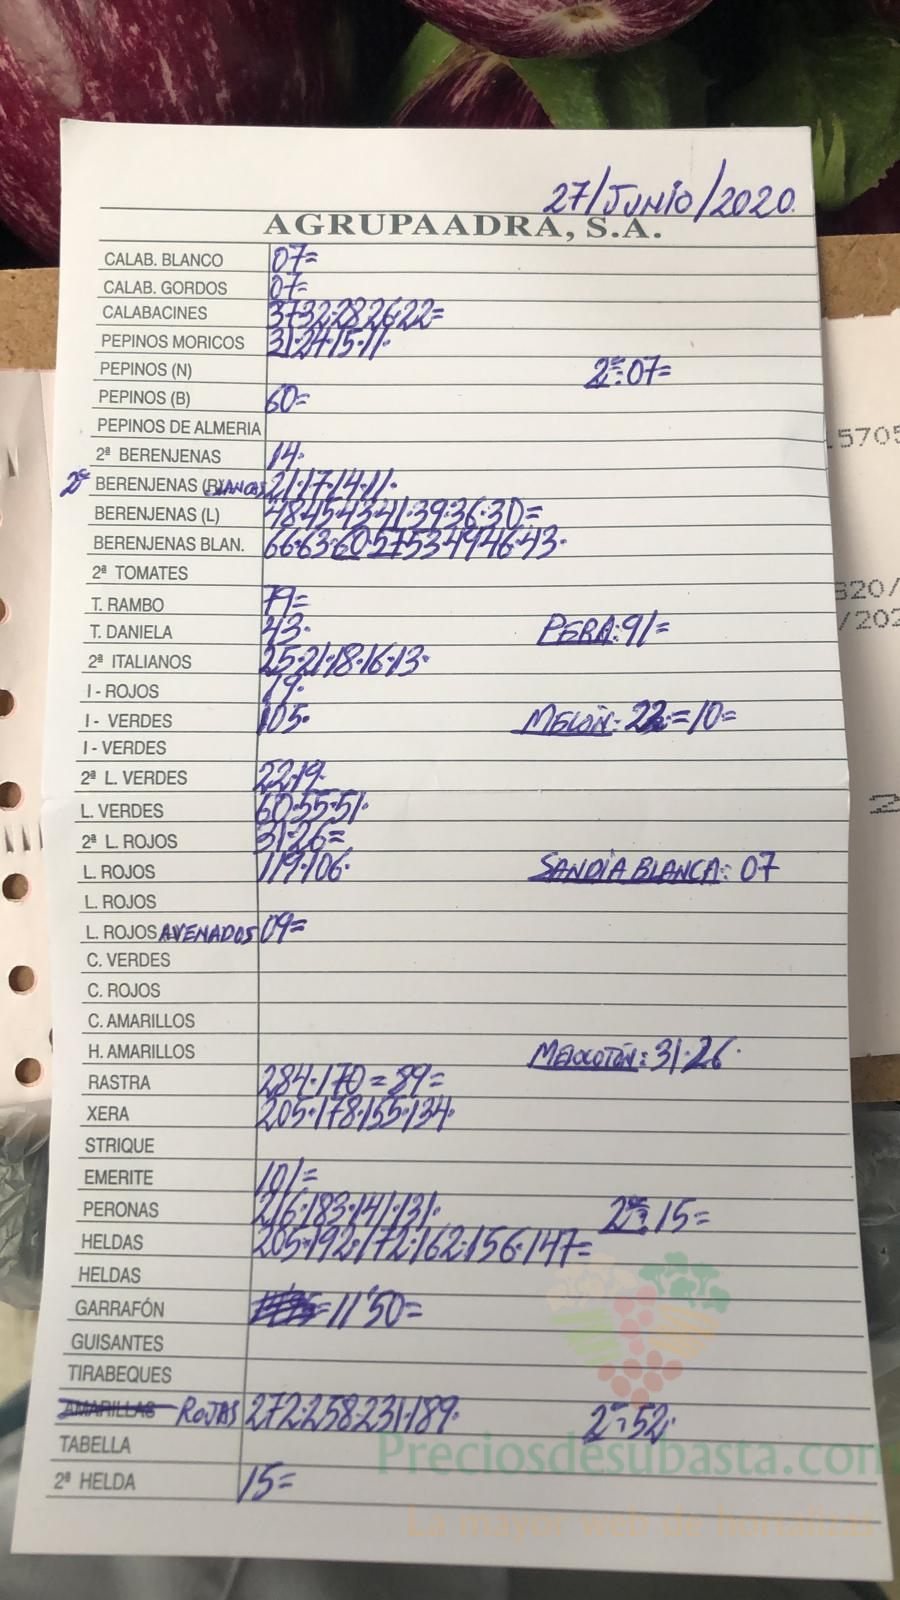 27/JUNIO/2020.
AGRUPAADRA, S.A.
CALAB. BLANCO 07=
CALAB. GORDOS 07=
CALABACINES 37·32·28·26·22=
PEPINOS MORICOS 31·24·15·11·
PEPINOS (N) 2ª: 07=
PEPINOS (B) 60=
PEPINOS DE ALMERIA
2ª BERENJENAS 14·
2ª BERENJENAS BLANCAS 21·17·14·11·
BERENJENAS (L) 48·45·43·41·39·36·30=
BERENJENAS BLAN. 66·63·60·57·53·49·46·43·
2ª TOMATES
T. RAMBO 79=
T. DANIELA 43· PERA: 91=
2ª ITALIANOS 25·21·18·16·13·
I - ROJOS 79·
I - VERDES 105· MELÓN: 22=10=
I - VERDES
2ª L. VERDES 22·19·
L. VERDES 60·55·51·
2ª L. ROJOS 31·26=
L. ROJOS 119·106· SANDÍA BLANCA: 07
L. ROJOS
L. ROJOS AVENADOS 09=
C. VERDES
C. ROJOS
C. AMARILLOS
H. AMARILLOS MELOCOTÓN: 31·26·
RASTRA 284·170=89=
XERA 205·178·155·134·
STRIQUE
EMERITE 101=
PERONAS 216·183·141·131· 2ª: 15=
HELDAS 205·192·172·162·156·147=
HELDAS
GARRAFÓN 11'50=
GUISANTES
TIRABEQUES
AMARILLAS ROJAS 272·258·231·189· 2ª: 52·
TABELLA
2ª HELDA 15=
Preciosdesubasta.com
La mayor web de hortalizas
15705
320/
/202
2